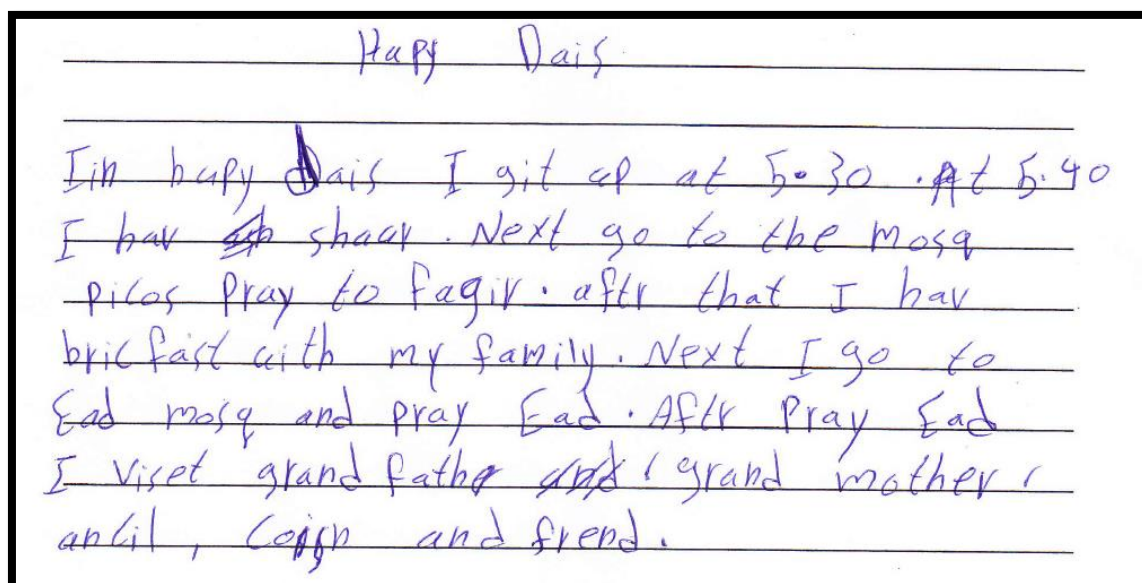 Hapy Dais
Iin hapy Dais I git up at 5.30 . At 5.40
I hav shaar . Next go to the mosq
picos pray to fagir . aftr that I hav
bricfast with my family. Next I go to
Ead mosq and pray Ead . Aftr Pray Ead
I viset grand fathr , grand mother ,
ancil , and frend .